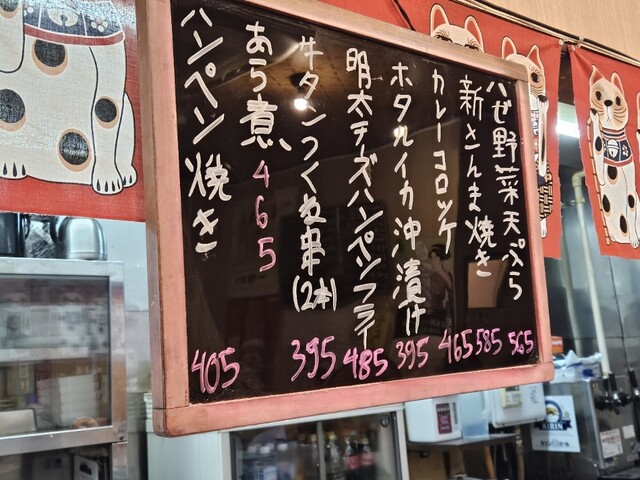 ハゼ野菜天ぷら 565
新さんま焼き 585
カレーコロッケ 465
ホタルイカ沖漬け 395
明太チーズハンペンフライ 485
牛タンつくね串(2本) 395
あら煮 465
ハンペン焼き 405
KIRIN